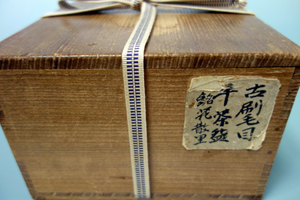 古刷毛目
平茶盌
銘花散里